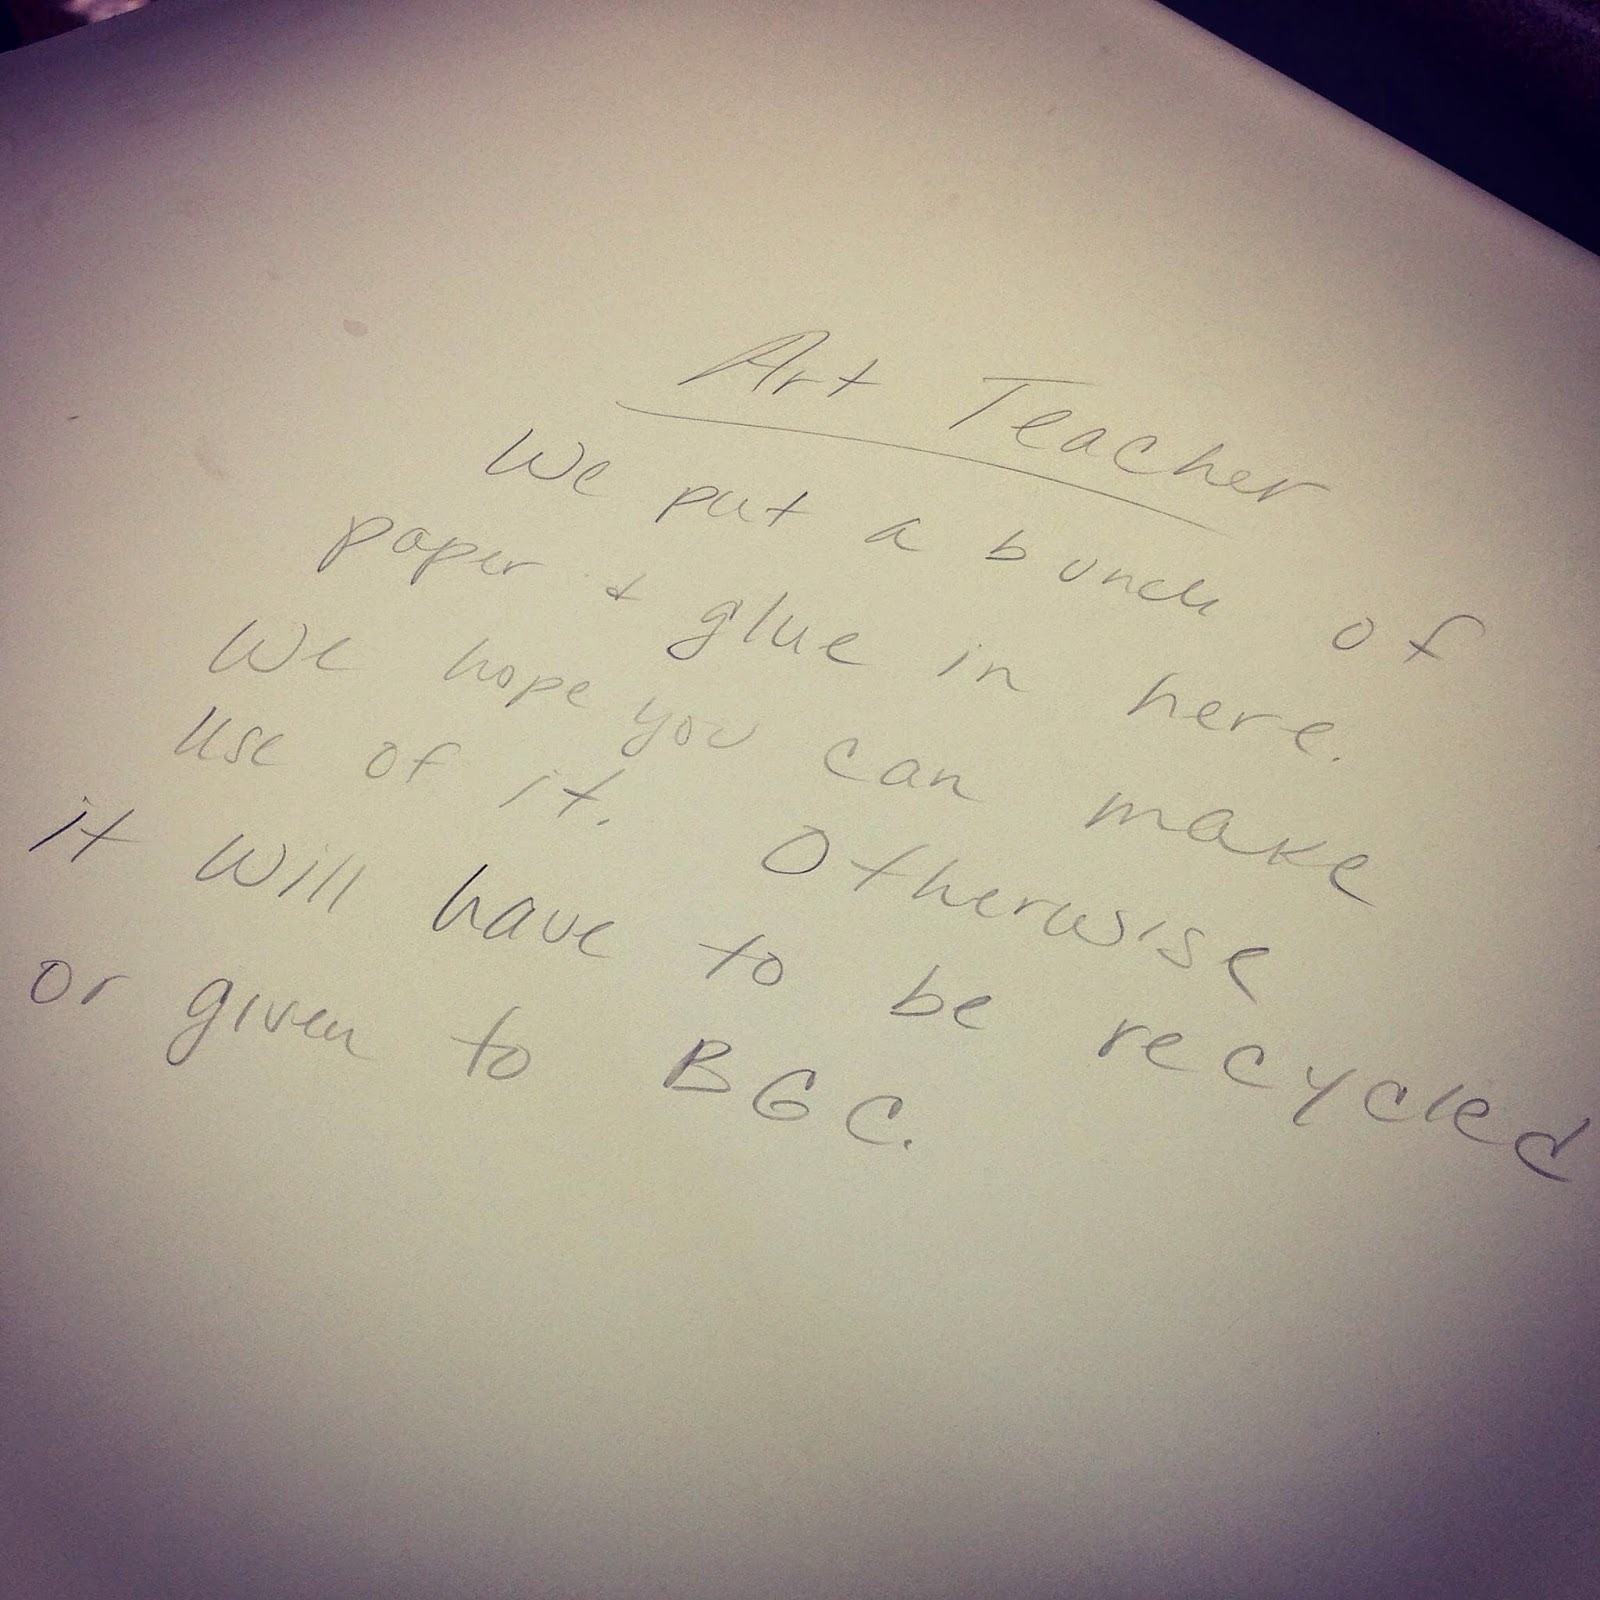 Art Teacher
We put a bunch of
paper & glue in here.
We hope you can make
use of it. Otherwise
it will have to be recycled
or given to BGC.